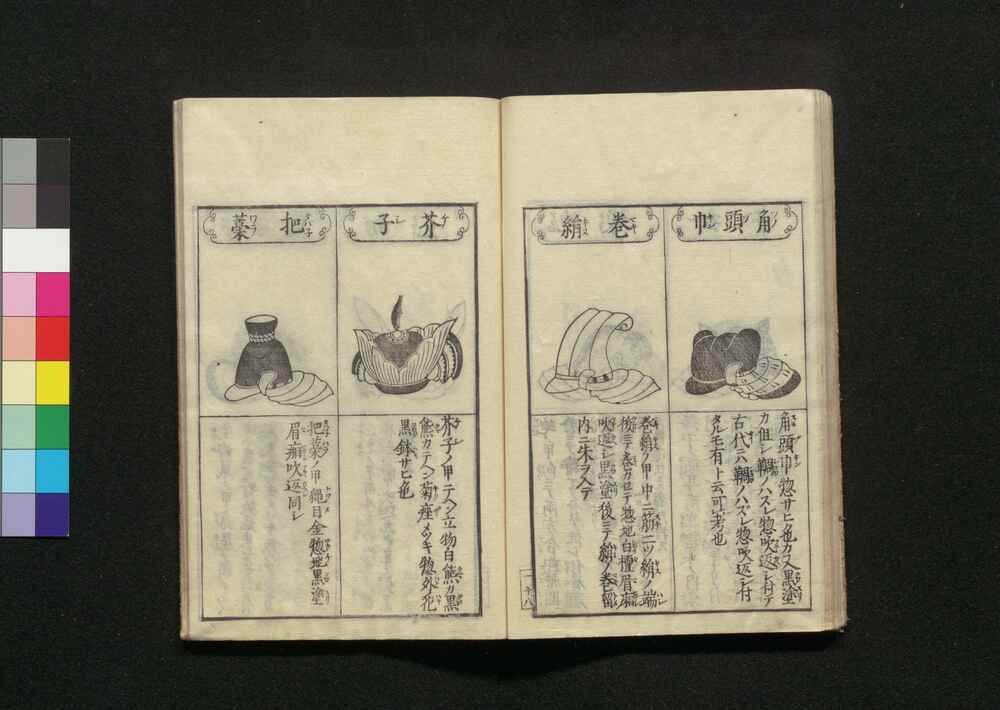 角頭巾
角頭巾惣サヒ色カ又黒塗
カ但シ鞠ノハズレ惣吹返シ付テ
古代ニハ鞠ノハズレ惣吹返シ付
タルモ有ト云可考也
巻絹
巻絹ノ甲中ニ筋二ツ絹ノ端
後ニテ巻カロテ惣地白檀眉
吹返シ黒塗後ニテ絹ノ巻留
内ニ朱ヲ入テ
芥子
芥子ノ甲ニテヘン立物白熊カ黒
熊カテヘン菊座メッキ惣外花
黒鉢サヒ色
把藁
把藁ノ甲縄目金惣地黒塗
眉庇吹返同シ